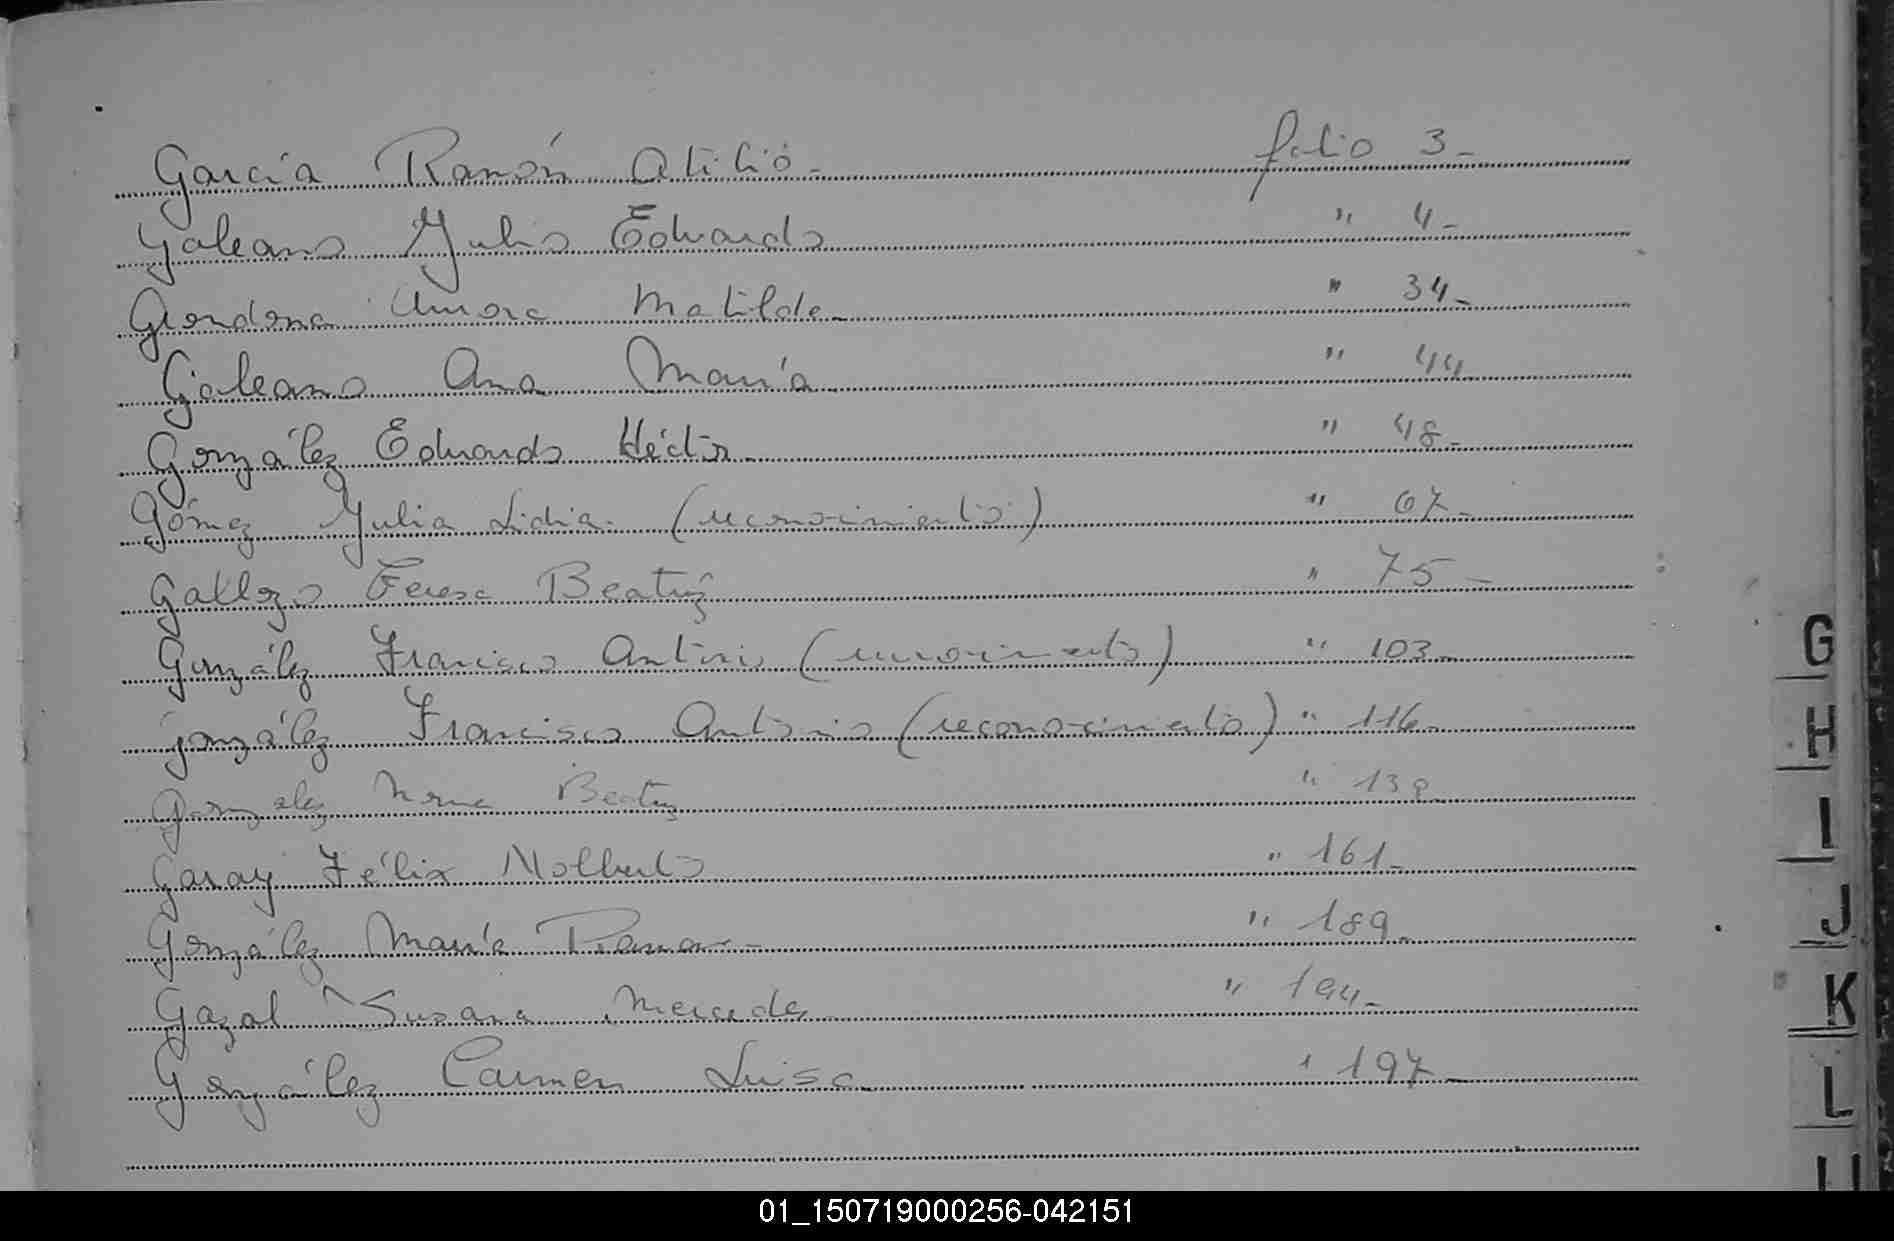 García Ramón Atilio.- folio 3-
Galeano Julio Eduardo " 4-
Gerondona Aurora Matilde- " 34-
Galeano Ana María " 44
González Eduardo Héctor " 48-
Gómez Julia Lidia. (reconocimiento) " 67-
Gallozo Teresa Beatriz " 75-
González Francisco Antonio (reconocimiento) " 103-
González Francisco Antonio (reconocimiento) " 116-
Gonzalez Norma Beatriz " 138
Garay Félix Nolberto " 161-
González María Ramona- " 189-
Gazal Susana Mercedes " 194-
González Carmen Luisa " 197-
G
H
I
J
K
L
01_150719000256-042151